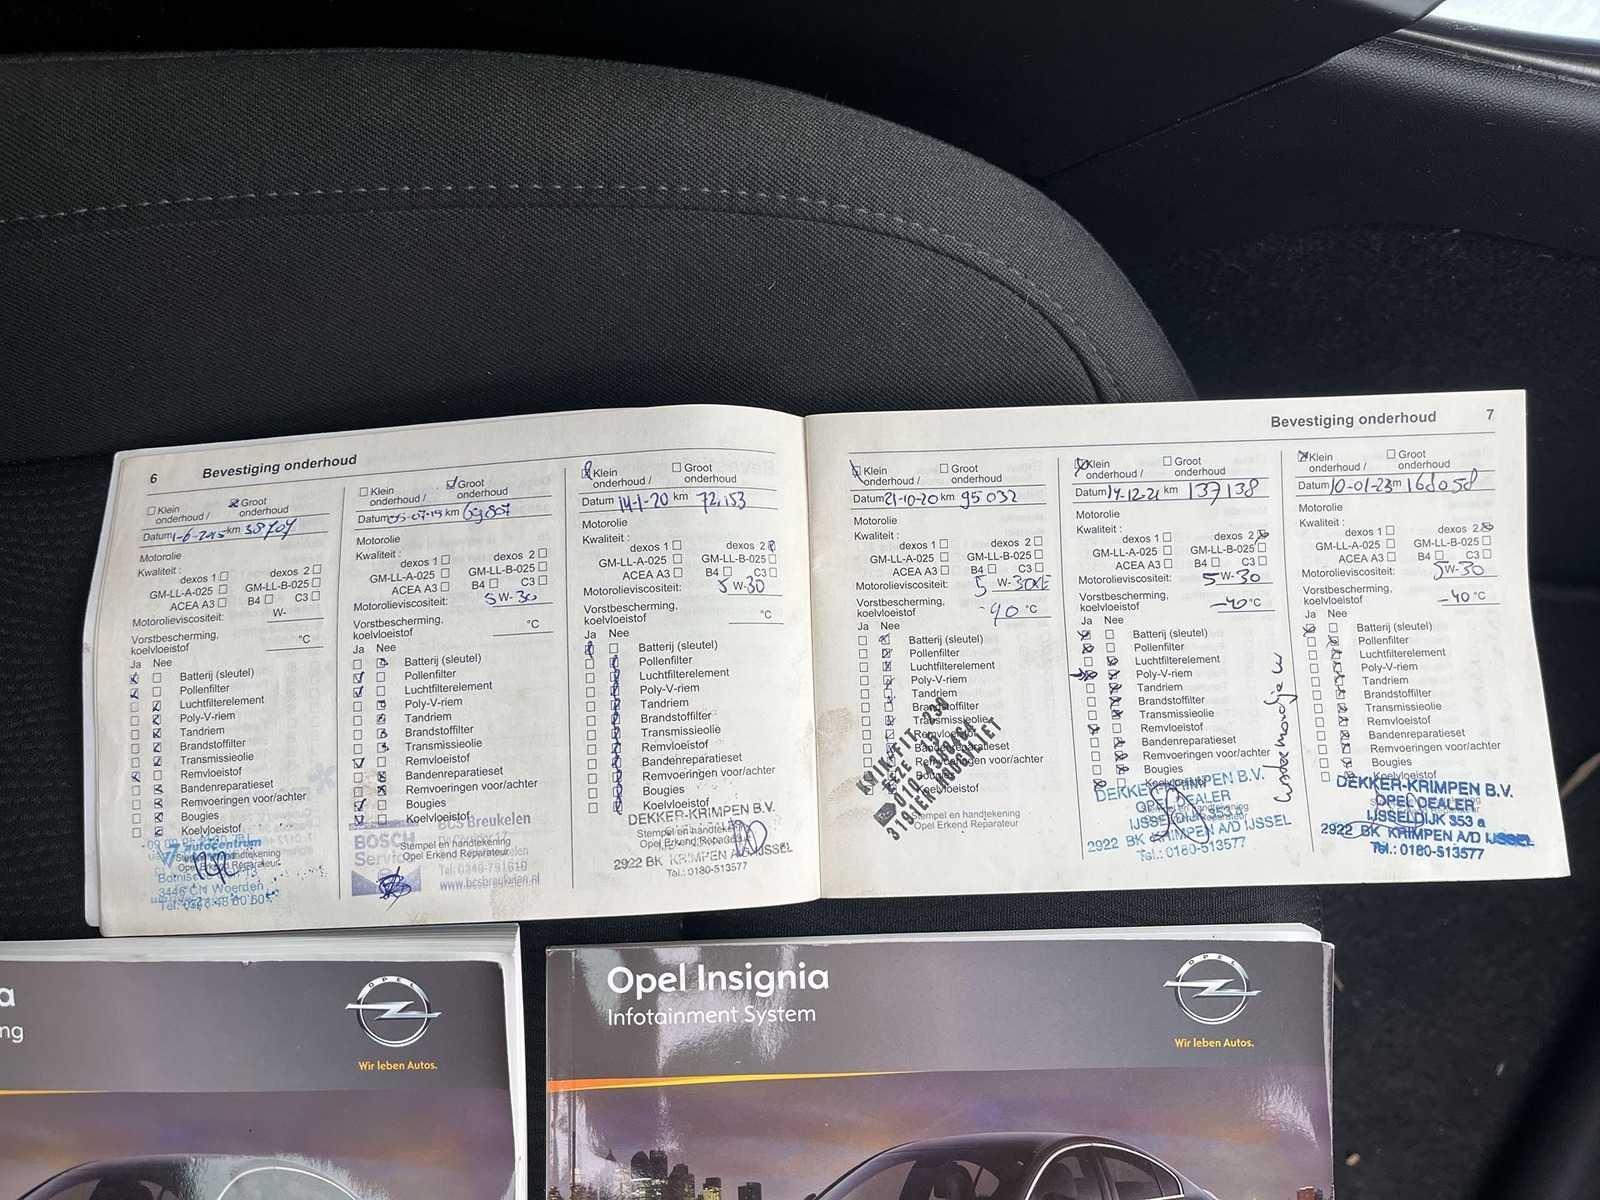 6 Bevestiging onderhoud
Klein onderhoud / Groot onderhoud
Datum 1-6-2015 km 38707
Motorolie
Kwaliteit :
dexos 1 dexos 2
GM-LL-A-025 GM-LL-B-025
ACEA A3 B4 C3
Motorolieviscositeit: W-
Vorstbescherming,
koelvloeistof °C
Ja Nee
Batterij (sleutel)
Pollenfilter
Luchtfilterelement
Poly-V-riem
Tandriem
Brandstoffilter
Transmissieolie
Remvloeistof
Bandenreparatieset
Remvoeringen voor/achter
Bougies
Koelvloeistof
autocentrum
Stempel en handtekening
Opel Erkend Reparateur
3446 CN Woerden
Klein onderhoud / Groot onderhoud
Datum 05-07-19 km 69807
Motorolie
Kwaliteit :
dexos 1 dexos 2
GM-LL-A-025 GM-LL-B-025
ACEA A3 B4 C3
Motorolieviscositeit: 5 W-30
Vorstbescherming,
koelvloeistof °C
Ja Nee
Batterij (sleutel)
Pollenfilter
Luchtfilterelement
Poly-V-riem
Tandriem
Brandstoffilter
Transmissieolie
Remvloeistof
Bandenreparatieset
Remvoeringen voor/achter
Bougies
Koelvloeistof
BOSCH Service
BCS Breukelen
Stempel en handtekening
Opel Erkend Reparateur
www.bcsbreukelen.nl
Klein onderhoud / Groot onderhoud
Datum 14-1-20 km 72.153
Motorolie
Kwaliteit :
dexos 1 dexos 2
GM-LL-A-025 GM-LL-B-025
ACEA A3 B4 C3
Motorolieviscositeit: 5 W-30
Vorstbescherming,
koelvloeistof °C
Ja Nee
Batterij (sleutel)
Pollenfilter
Luchtfilterelement
Poly-V-riem
Tandriem
Brandstoffilter
Transmissieolie
Remvloeistof
Bandenreparatieset
Remvoeringen voor/achter
Bougies
Koelvloeistof
DEKKER-KRIMPEN B.V.
Stempel en handtekening
Opel Erkend Reparateur
2922 BK KRIMPEN A/D IJSSEL
Tel.: 0180-513577
Bevestiging onderhoud 7
Klein onderhoud / Groot onderhoud
Datum 21-10-20 km 95032
Motorolie
Kwaliteit :
dexos 1 dexos 2
GM-LL-A-025 GM-LL-B-025
ACEA A3 B4 C3
Motorolieviscositeit: 5 W-30
Vorstbescherming,
koelvloeistof °C
Ja Nee
Batterij (sleutel)
Pollenfilter
Luchtfilterelement
Poly-V-riem
Tandriem
Brandstoffilter
Transmissieolie
Remvloeistof
Bandenreparatieset
Remvoeringen voor/achter
Bougies
Koelvloeistof
KWIK-FIT 230
Stempel en handtekening
Opel Erkend Reparateur
Klein onderhoud / Groot onderhoud
Datum 14-12-21 km 137138
Motorolie
Kwaliteit :
dexos 1 dexos 2
GM-LL-A-025 GM-LL-B-025
ACEA A3 B4 C3
Motorolieviscositeit: 5 W-30
Vorstbescherming,
koelvloeistof -40 °C
Ja Nee
Batterij (sleutel)
Pollenfilter
Luchtfilterelement
Poly-V-riem
Tandriem
Brandstoffilter
Transmissieolie
Remvloeistof
Bandenreparatieset
Remvoeringen voor/achter
Bougies
Koelvloeistof
DEKKER-KRIMPEN B.V.
OPEL DEALER
IJSSELDIJK
2922 BK KRIMPEN A/D IJSSEL
Tel.: 0180-513577
Klein onderhoud / Groot onderhoud
Datum 10-01-23 km 168058
Motorolie
Kwaliteit :
dexos 1 dexos 2
GM-LL-A-025 GM-LL-B-025
ACEA A3 B4 C3
Motorolieviscositeit: 5 W-30
Vorstbescherming,
koelvloeistof -40 °C
Ja Nee
Batterij (sleutel)
Pollenfilter
Luchtfilterelement
Poly-V-riem
Tandriem
Brandstoffilter
Transmissieolie
Remvloeistof
Bandenreparatieset
Remvoeringen voor/achter
Bougies
Koelvloeistof
DEKKER-KRIMPEN B.V.
OPEL DEALER
IJSSELDIJK 353 a
2922 BK KRIMPEN A/D IJSSEL
Tel.: 0180-513577
a
ng
OPEL
Wir leben Autos.
Opel Insignia
Infotainment System
OPEL
Wir leben Autos.